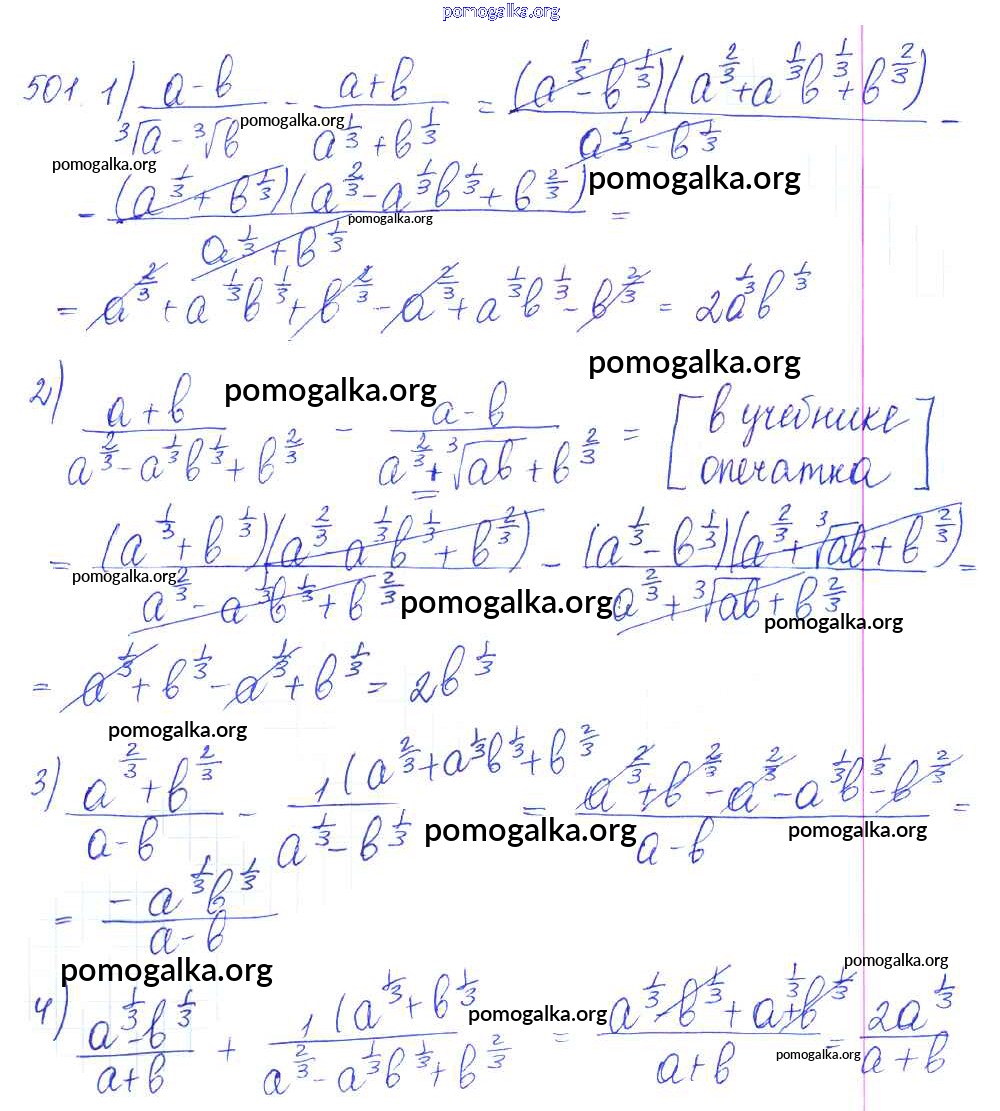 pomogalka.org
501. 1) (a-b)/(∛a-∛b) - (a+b)/(a^(1/3)+b^(1/3)) = (a^(1/3)-b^(1/3))(a^(2/3)+a^(1/3)b^(1/3)+b^(2/3))/(a^(1/3)-b^(1/3)) -
pomogalka.org
pomogalka.org
pomogalka.org
- (a^(1/3)+b^(1/3))(a^(2/3)-a^(1/3)b^(1/3)+b^(2/3))/(a^(1/3)+b^(1/3)) =
pomogalka.org
= a^(2/3)+a^(1/3)b^(1/3)+b^(2/3)-a^(2/3)+a^(1/3)b^(1/3)-b^(2/3) = 2a^(1/3)b^(1/3)
pomogalka.org
pomogalka.org
2) (a+b)/(a^(2/3)-a^(1/3)b^(1/3)+b^(2/3)) - (a-b)/(a^(2/3)+∛(ab)+b^(2/3)) = [в учебнике
опечатка]
= (a^(1/3)+b^(1/3))(a^(2/3)-a^(1/3)b^(1/3)+b^(2/3))/(a^(2/3)-a^(1/3)b^(1/3)+b^(2/3)) - (a^(1/3)-b^(1/3))(a^(2/3)+∛(ab)+b^(2/3))/(a^(2/3)+∛(ab)+b^(2/3)) =
pomogalka.org
pomogalka.org
pomogalka.org
= a^(1/3)+b^(1/3)-a^(1/3)+b^(1/3) = 2b^(1/3)
pomogalka.org
3) (a^(2/3)+b^(2/3))/(a-b) - 1(a^(2/3)+a^(1/3)b^(1/3)+b^(2/3)/(a^(1/3)-b^(1/3)) = (a^(2/3)+b^(2/3)-a^(2/3)-a^(1/3)b^(1/3)-b^(2/3))/(a-b) =
pomogalka.org
pomogalka.org
= -a^(1/3)b^(1/3)/(a-b)
pomogalka.org
pomogalka.org
4) (a^(1/3)-b^(1/3))/(a+b) + 1(a^(1/3)+b^(1/3)/(a^(2/3)-a^(1/3)b^(1/3)+b^(2/3)) = (a^(1/3)-b^(1/3)+a^(1/3)+b^(1/3))/(a+b) = 2a^(1/3)/(a+b)
pomogalka.org
pomogalka.org